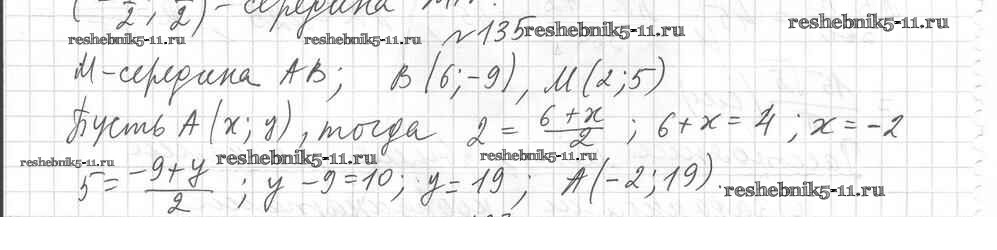 (-/2; /2) - середина MN.
reshebnik5-11.ru reshebnik5-11.ru №135 reshebnik5-11.ru reshebnik5-11.ru
M-середина AB; B(6;-9), M(2;5)
Пусть A(x;y), тогда 2 = (6+x)/2; 6+x=4; x=-2
reshebnik5-11.ru reshebnik5-11.ru reshebnik5-11.ru
5 = (-9+y)/2; y-9=10; y=19; A(-2;19).
reshebnik5-11.ru